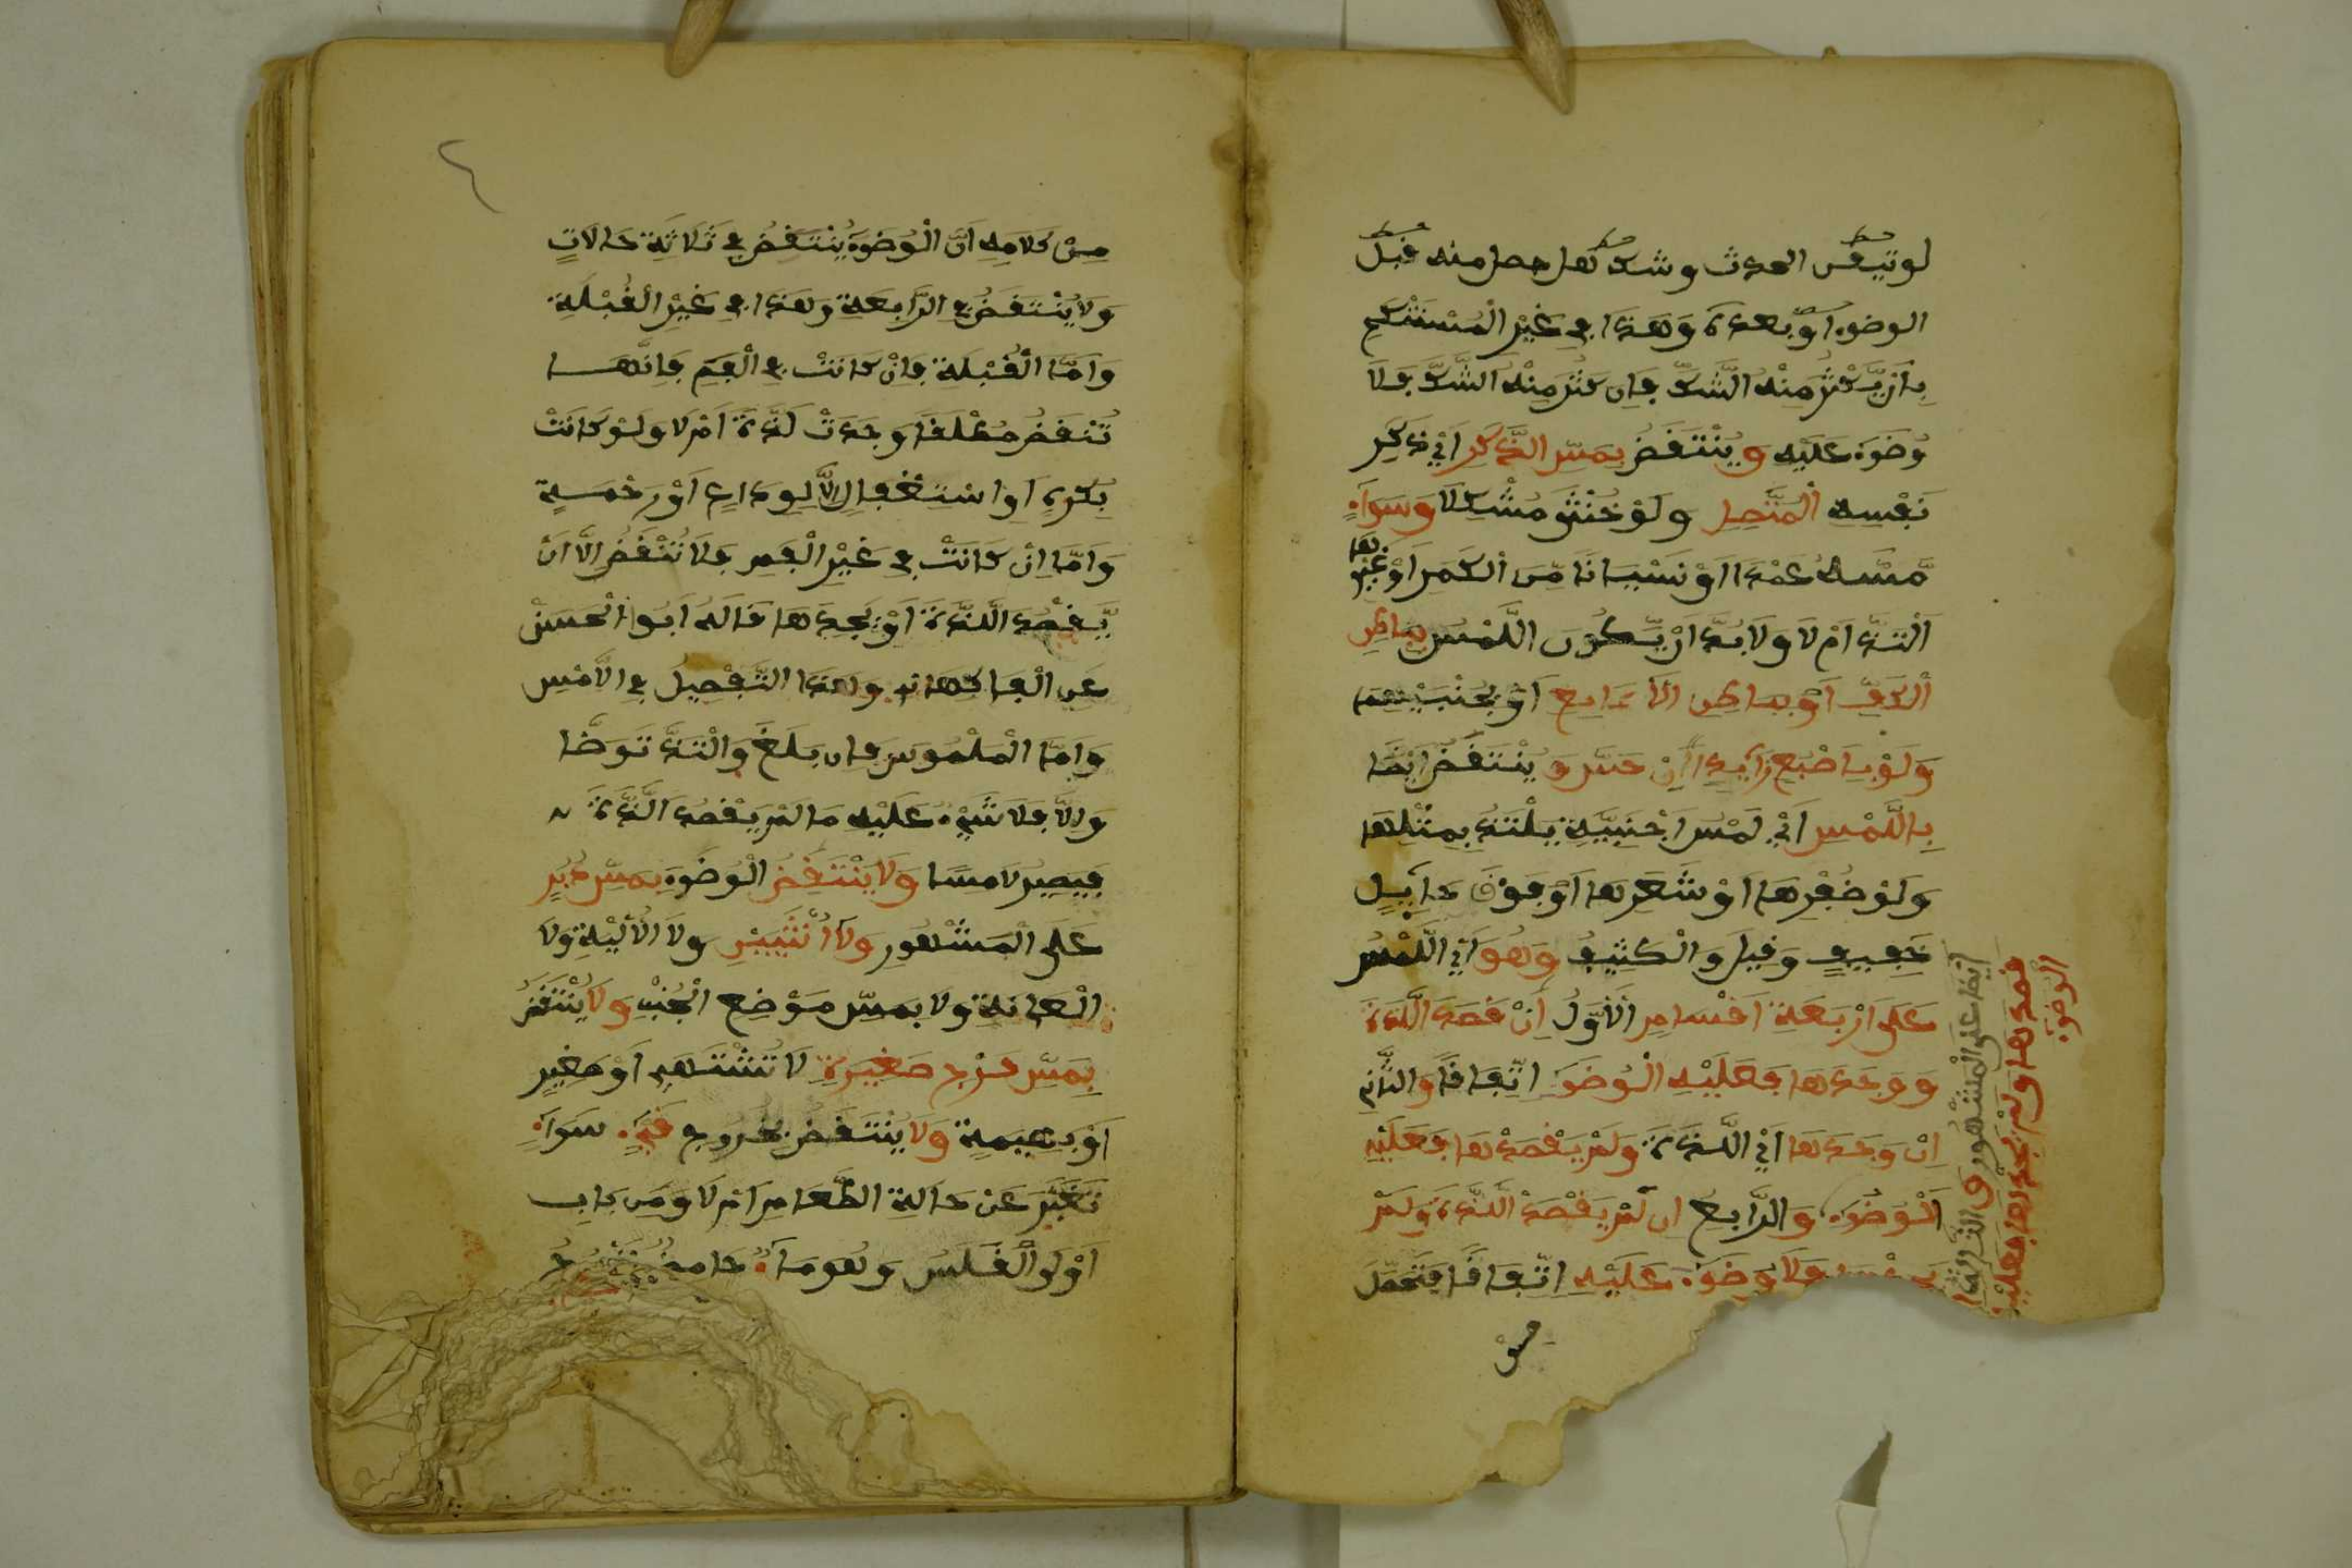 لو تيقن الحدث وشك هل حصل منه قبل
الوضوء او بعده وهذا في غير المستنكح
بِأن يَّكْثُرَ مِنْهُ الشَّكّ فإن كثر مِنْهُ الشَّكّ فلا
وُضُوءَ عَلَيْهِ وَيُنْتَقَضُ بِمَسِّ الذَّكَرِ اَيْ ذكر
نَفْسِهِ الْمُتَّصِلِ وَلَوْ خُنْثَى مُشْكِلًا وَسَوَآءٌ
مَّسَّهُ عَمْدًا اَوْ نَسْيَانًا مِّنَ الكمرة اَوْ غيرها
اَلْتَذَّ اَمْ لَا وَلَا بُدَّ ان يَّكُونَ اللَّمْسُ بباطن
الْكَفِّ اَوْ بباطن الاصابع اَوْ بجنبيهما
وَلَوْ بِاصْبُعٍ زَآئِدٍ اِنْ حَسَّ وَيُنْتَقَضُ اَيْضًا
بِاللَّمْسِ اَيْ لَمْسِ اَجْنَبِيَّةٍ يلْتَذُّ بِمِثْلِهَا
وَلَوْ ظُفْرِهَا اَوْ شَعَرِهَا اَوْ فَوْقَ حَآئِلٍ
خَفِيفٍ وَقِيلَ وَالْكَثِيفِ وَهُوَ اَيْ اللَّمْسُ
عَلَى اَرْبَعَةِ اَقْسَامٍ الْاَوَّلُ اِنْ قَصَدَ اللَّذَّةَ
وَوَجَدَهَا فَعَلَيْهِ الْوُضُوءُ اتِّفَاقًا وَالثَّانِي
اِنْ وَجَدَهَا اَيْ اللَّذَّةَ وَلَمْ يَقْصِدْهَا فَعَلَيْهِ
الْوُضُوءُ وَالرَّابِعُ اِن لَّمْ يَقْصِدْ اللَّذَّةَ وَلَمْ
فَلَا وُضُوءَ عَلَيْهِ اتِّفَاقًا فَتَحَصَّلَ
مِنْ
ايضا على الْمَشْهُورِ والثالث
قصدها وَلَمْ يَجِدْهَا فَعَلَيْهِ
الْوُضُوءُ
٤
مِنْ كَلَامِهِ اَنَّ الْوُضُوءَ يُنْتَقَضُ فِي ثَلَاثَةِ حَالَاتٍ
وَلَا يُنْتَقَضُ فِي الرَّابِعَةِ وَهَذَا فِي غَيْرِ الْقُبْلَةِ
وَاَمَّا الْقُبْلَةُ فَاِنْ كَانَتْ فِي الْفَمِ فَاِنَّهَا
تُنْقِضُ مُطْلَقًا وَجَدَتْ لَذَّةً اَمْ لَا وَلَوْ كَانَتْ
بِكُرْهٍ اَوِ اسْتِغْفَالٍ اِلَّا لِوَدَاعٍ اَوْ رَحْمَةٍ
وَاَمَّا اِنْ كَانَتْ فِي غَيْرِ الْفَمِ فَلَا تُنْقِضُ اِلَّا اَنْ
يَّقْصُدَ اللَّذَّةَ اَوْ يَجِدَهَا قَالَهُ اَبُو الْحَسَنْ
عَنِ الْفَاكِهَانِي وَهَذَا التَّفْصِيلُ فِي اللَّامِسِ
وَاَمَّا الْمَلْمُوسُ فَاِن بَلَغَ وَالْتَذَّ تَوَضَّا
وَاِلَّا فَلَا شَيْءَ عَلَيْهِ مَا لَمْ يَقْصُدِ اللَّذَّةَ
فَيَصِيرُ لَامِسًا وَلَا يُنْتَقَضُ الْوُضُوءُ بِمَسِّ دُبُرٍ
عَلَى الْمَشْهُورِ وَلَا اُنْثَيَيْنِ وَلَا الْأَلْيَةِ وَلَا
الْعَانَةِ وَلَا بِمَسِّ مَوْضِعِ الْجُبِّ وَلَا يُنْتَقَضُ
بِمَسِّ فَرْجِ صَغِيرَةٍ لَا تُشْتَهَى اَوْ صَغِيرٍ
اَوْ بَهِيمَةٍ وَلَا يُنْتَقَضُ بِخُرُوجِ قَيْءٍ سَوَآءٌ
تَغَيَّرَ عَنْ حَالَةِ الطَّعَامِ اَمْ لَا وَمِن بَابِ
اَوْلَى الْقَلَسُ وَهُوَ مَآءٌ حَامِضٌ